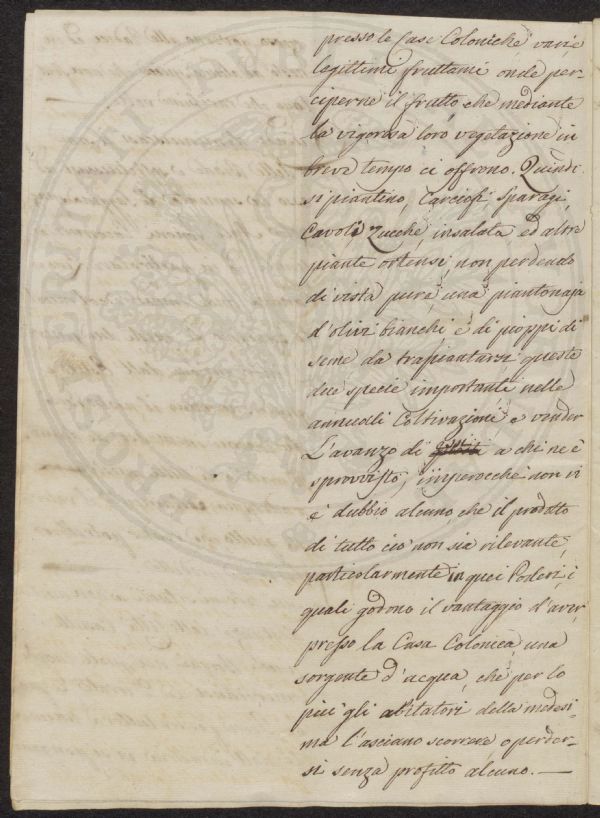 presso le Case Coloniche varie
legittimi fruttami onde per-
ciperne il frutto, che mediante
la vigorosa loro vegetazione in
breve tempo ci offrono. Quindi
si piantino, Carciofi, Sparagi,
Cavoli Zucche, insalata ed altre
piante ortensi, non perdendo
di vista pure, una piantonaja
d'olivi bianchi e di pioppi di
seme da trapiantarsi queste
due specie importanti nelle
annuali Coltivazioni e vender
L'avanzo di essi a chi ne è
sprovvisto, imperocchè non vi
è dubbio alcuno, che il prodotto
di tutto ciò non sia rilevante,
particolarmente in quei Poderi, i
quali godono il vantaggio d'aver,
presso la Casa Colonica, una
sorgente d'acqua, che per lo
più gli abitatori della medesi-
ma l'asciano scorrere e perder-
si senza profitto alcuno. —